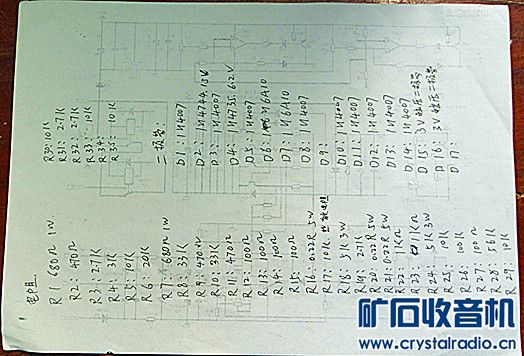 电阻
R1: 680Ω 1W
R2: 470Ω
R3: 27K
R4: 3K
R5: 10K
R6: 20K
R7: 680Ω 1W
R8: 33K
R9: 470Ω
R10: 33K
R11: 470Ω
R12: 100Ω
R13: 100Ω
R14: 100K
R15: 100Ω
R16: 0.22R 5W
R17: 10K
R18: 51K 3W
R19: 27K
R20: 0.22R 5W
R21: 0.22R 5W
R22: 1KΩ
R23: 1KΩ
R24: 51K 3W
R25: 10K
R26: 100K
R27: 100Ω
R28: 561K
R29: 10K
R30: 101K
R31: 27K
R32: 27K
R33: 10K
R34:
R35: 101K
二极管:
D1: 1N4007
D2: 1N4744 15V
D3: 1N4007
D4: 1N4735 6.2V
D5: 1N4007
D6: 6A10
D7: 1N4007
D8: 1N4007
D9:
D10: 1N4007
D11: 1N4007
D12: 1N4007
D13: 1N4007
D14: 1N4007
D15: 3V稳压二极管
D16: 3V稳压二极管
D17:
矿石收音机
www.crystalradio.cn